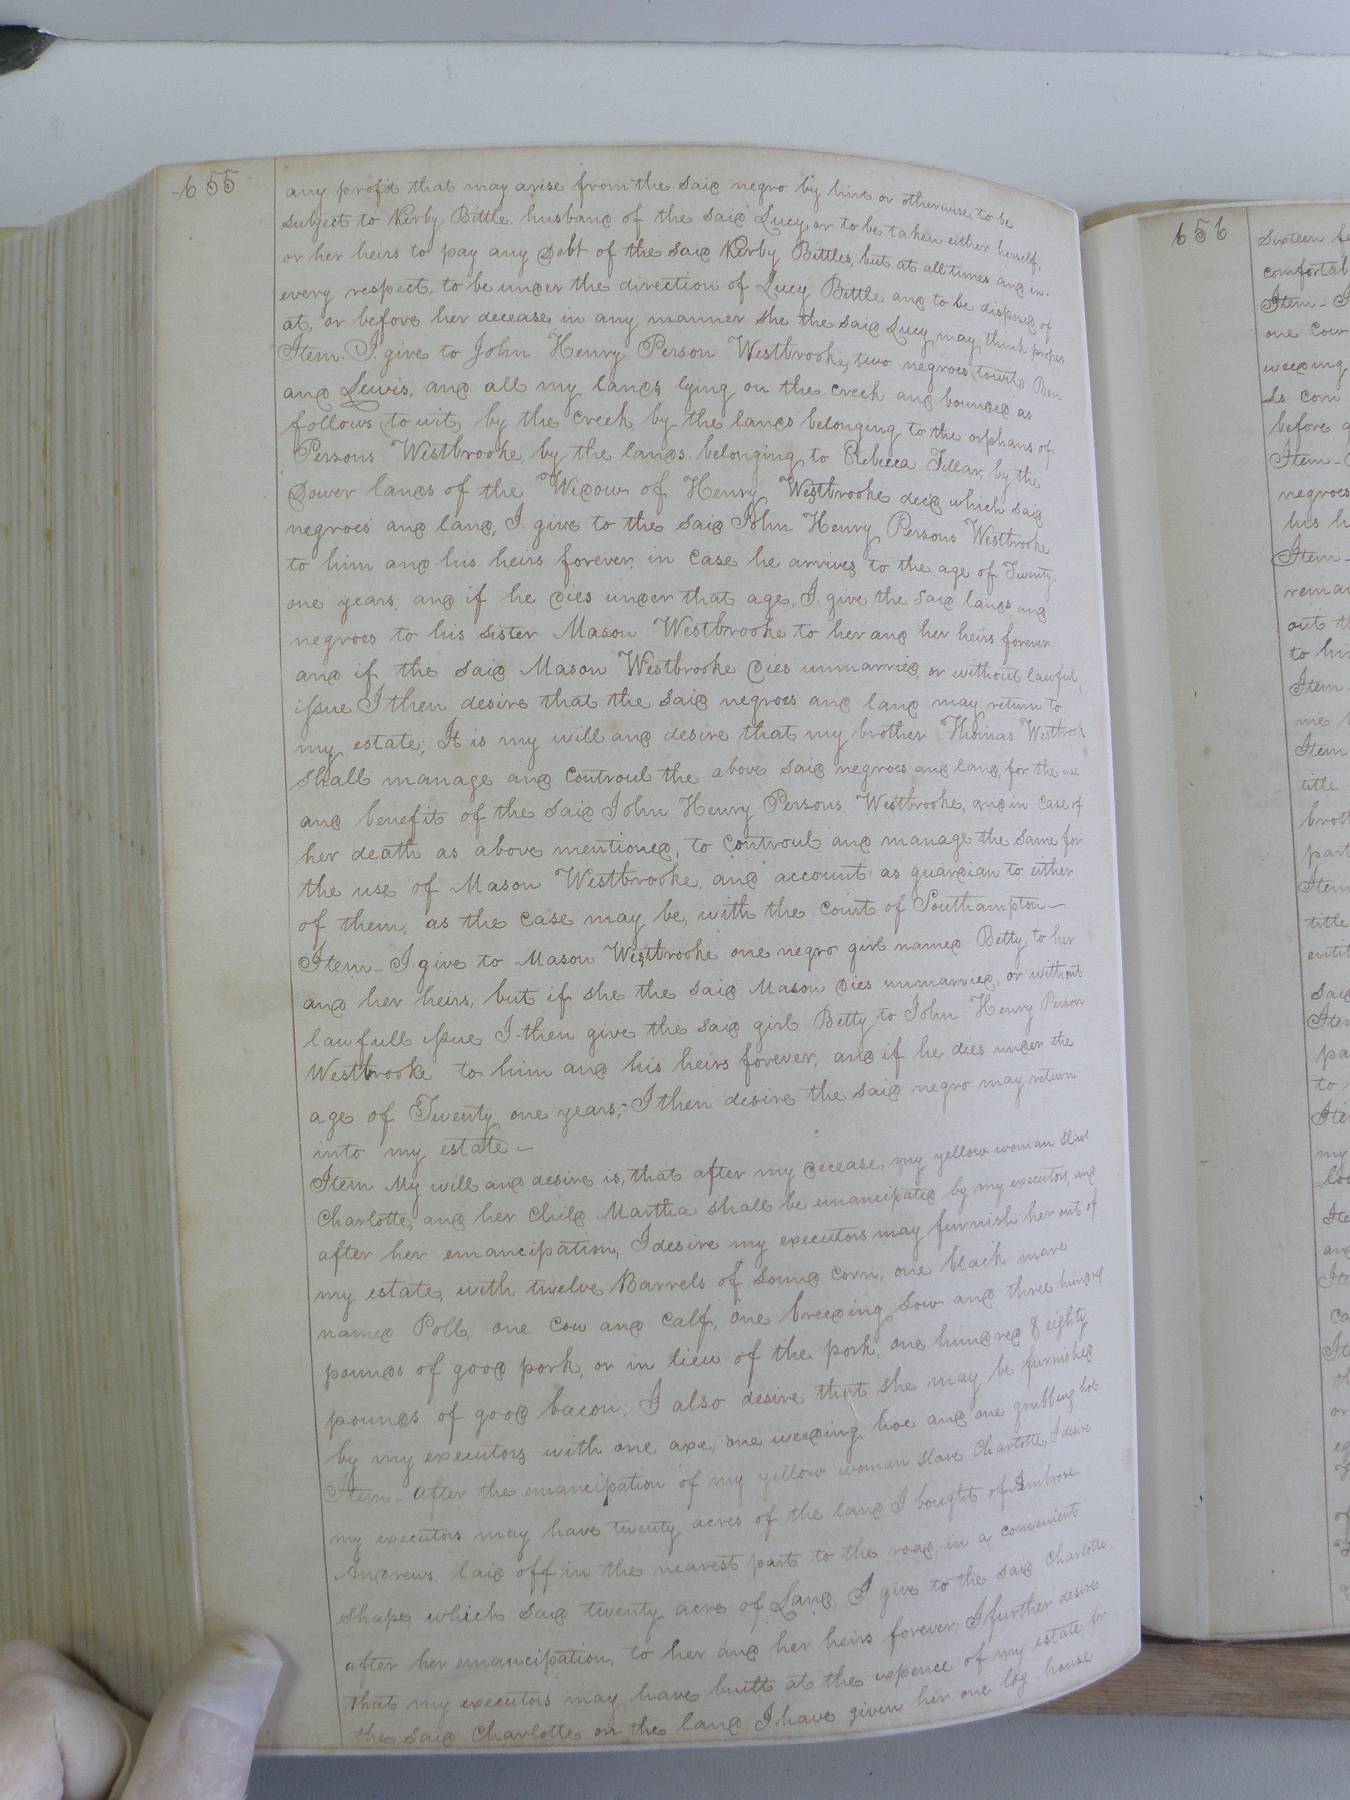 655
any profit that may arise from the said negro by hire or otherwise, to be
subject to Kerby Bittle husband of the said Lucy, or to be taken either herself,
or her heirs to pay any debt of the said Kerby Bittles, but at all times and in
every respect, to be under the direction of Lucy Bittle and to be disposed of
at, or before her decease in any manner she the said Lucy may think proper
Item. I give to John Henry Person Westbrooke, two negroes (towit) Ben
and Lewis, and all my lands lying on the creek and bounded as
follows (to wit) by the creek by the lands belonging to the orphans of
Persons Westbrooke, by the lands belonging to Rebecca Tillar, by the
Dower lands of the Widow of Henry Westbrooke decd which said
negroes and land, I give to the said John Henry Persons Westbrooke
to him and his heirs forever, in case he arrives to the age of Twenty
one years, and if he dies under that age, I give the said lands and
negroes to his sister Mason Westbrooke to her and her heirs forever
and if the said Mason Westbrooke dies unmarried, or without lawful,
issue I then desire that the said negroes and land may return to
my estate; It is my will and desire that my brother Thomas Westbrook
shall manage and controul the above said negroes and land, for the use
and benefit of the said John Henry Persons Westbrooke, and in case of
her death as above mentioned, to controul and manage the same for
the use of Mason Westbrooke, and account as guardian to either
of them, as the case may be, with the court of Southampton—
Item- I give to Mason Westbrooke one negro girl named Betty, to her
and her heirs, but if she the said Mason dies unmarried, or without
lawfull issue I then give the said girl Betty to John Henry Person
Westbrooke to him and his heirs forever, and if he dies under the
age of Twenty one years;- I then desire the said negro may return
into my estate -
Item My will and desire is, that after my decease, my yellow woman slave
Charlotte, and her child Martha shall be emancipated by my executors, and
after her emancipation, I desire my executors may furnish her out of
my estate, with twelve Barrels of sound corn, one black mare
named Poll, one cow and calf, one breeding sow and three hundred
pounds of good pork, or in lieu of the pork, one hundred & eighty
pounds of good bacon; I also desire that she may be furnished
by my executors with one axe, one weeding hoe and one grubbing hoe
Item- After the emancipation of my yellow woman slave Charlotte, I desire
my executors may have twenty acres of the land I bought of Ambrose
Andrews, laid off in the nearest part to the road, in a convenient
shape, which said twenty acre of Land, I give to the said Charlotte
after her emancipation, to her and her heirs forever, I further desire
that my executors may have built at the expence of my estate for
the said Charlotte on the land I have given her one log house
656
Sixteen
comfortab
Item-
one cow
weeding
before
Item-
negroes
his
Item-
remai
out
to him
Item
me
Item
title
broth
part
Item
title
entit
said
Item
pa
to
my
and
or
of